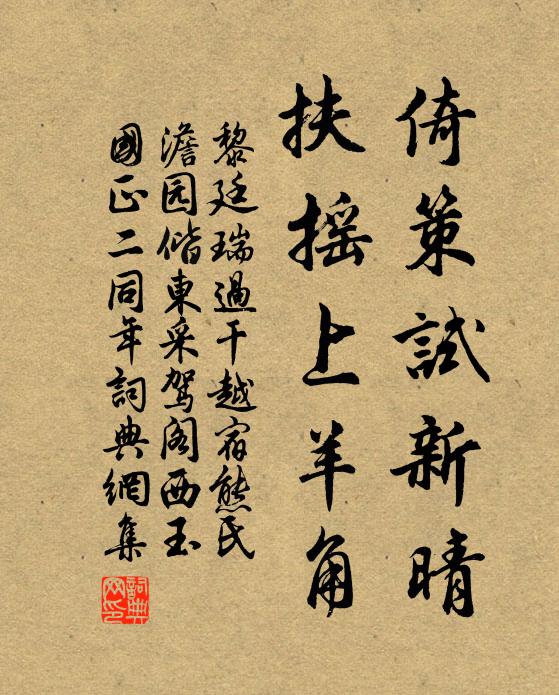 倚策試新晴
扶摇上羊角
黎廷瑞過干越宿熊氏
澹园偕東采駕阁西玉
國正二同年詞典網集
詞典網印